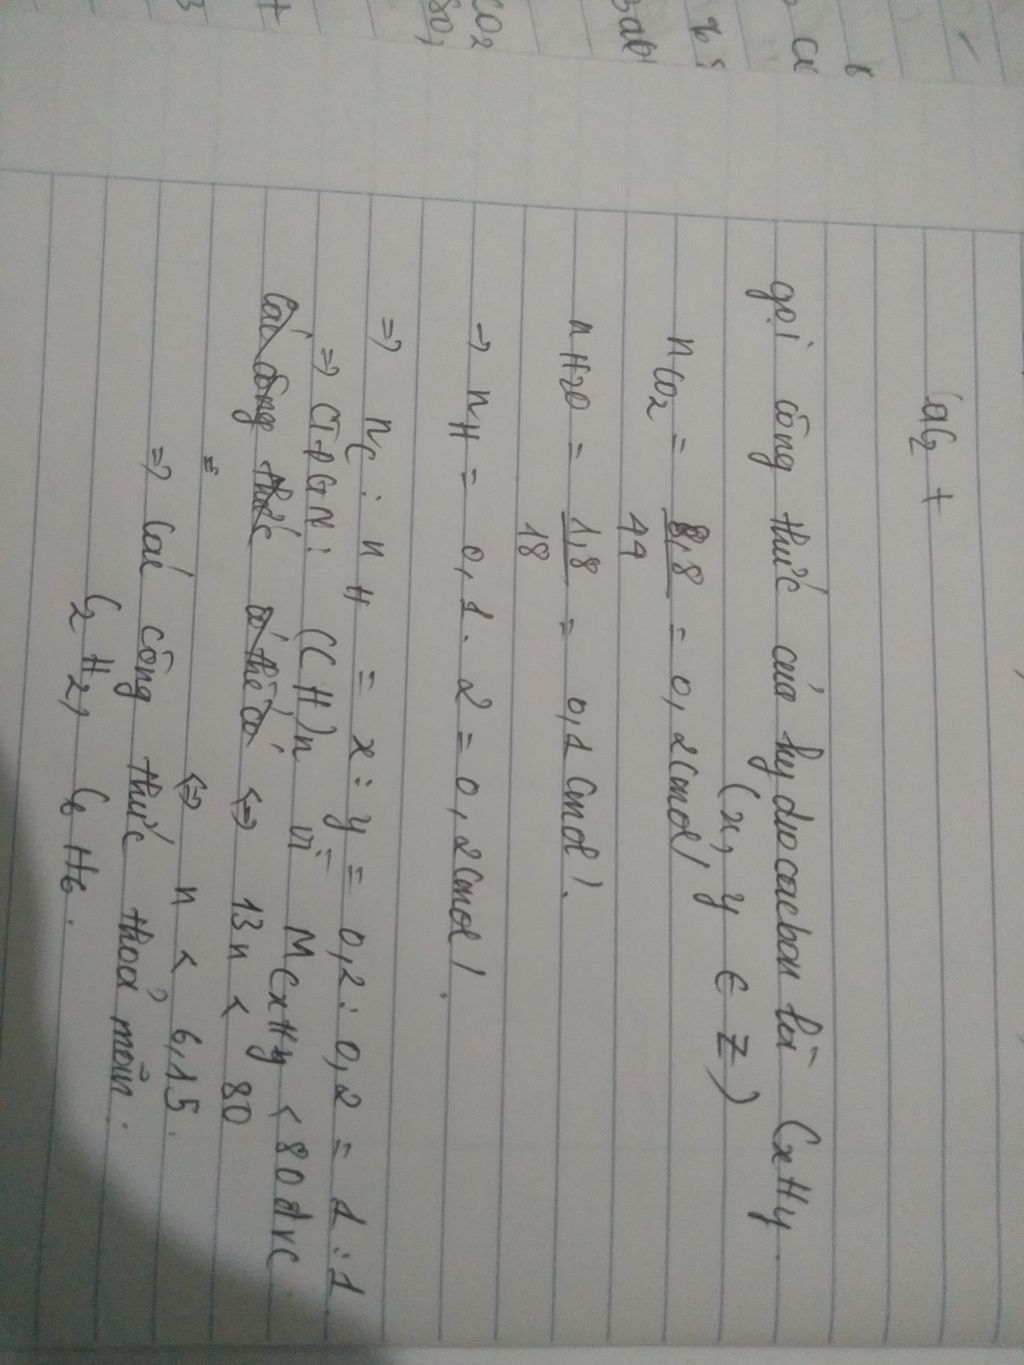 CaC2 +
gọi công thức của hyđrocacbon là CxHy.
(x, y ∈ Z)
nCO2 = 8,8 / 44 = 0,2(mol)
nH2O = 1,8 / 18 = 0,1(mol).
→ nH = 0,1. 2 = 0,2(mol).
⇒ nC : nH = x : y = 0,2 : 0,2 = 1 : 1
⇒ CTĐGN: (CH)n vì MCxHy < 80 đvC
Các công thức có thể có ⇔ 13n < 80
⇔ n < 6,15.
⇒ Các công thức thoả mãn.
C2H2, C6H6.
CO2
SO,
+
3